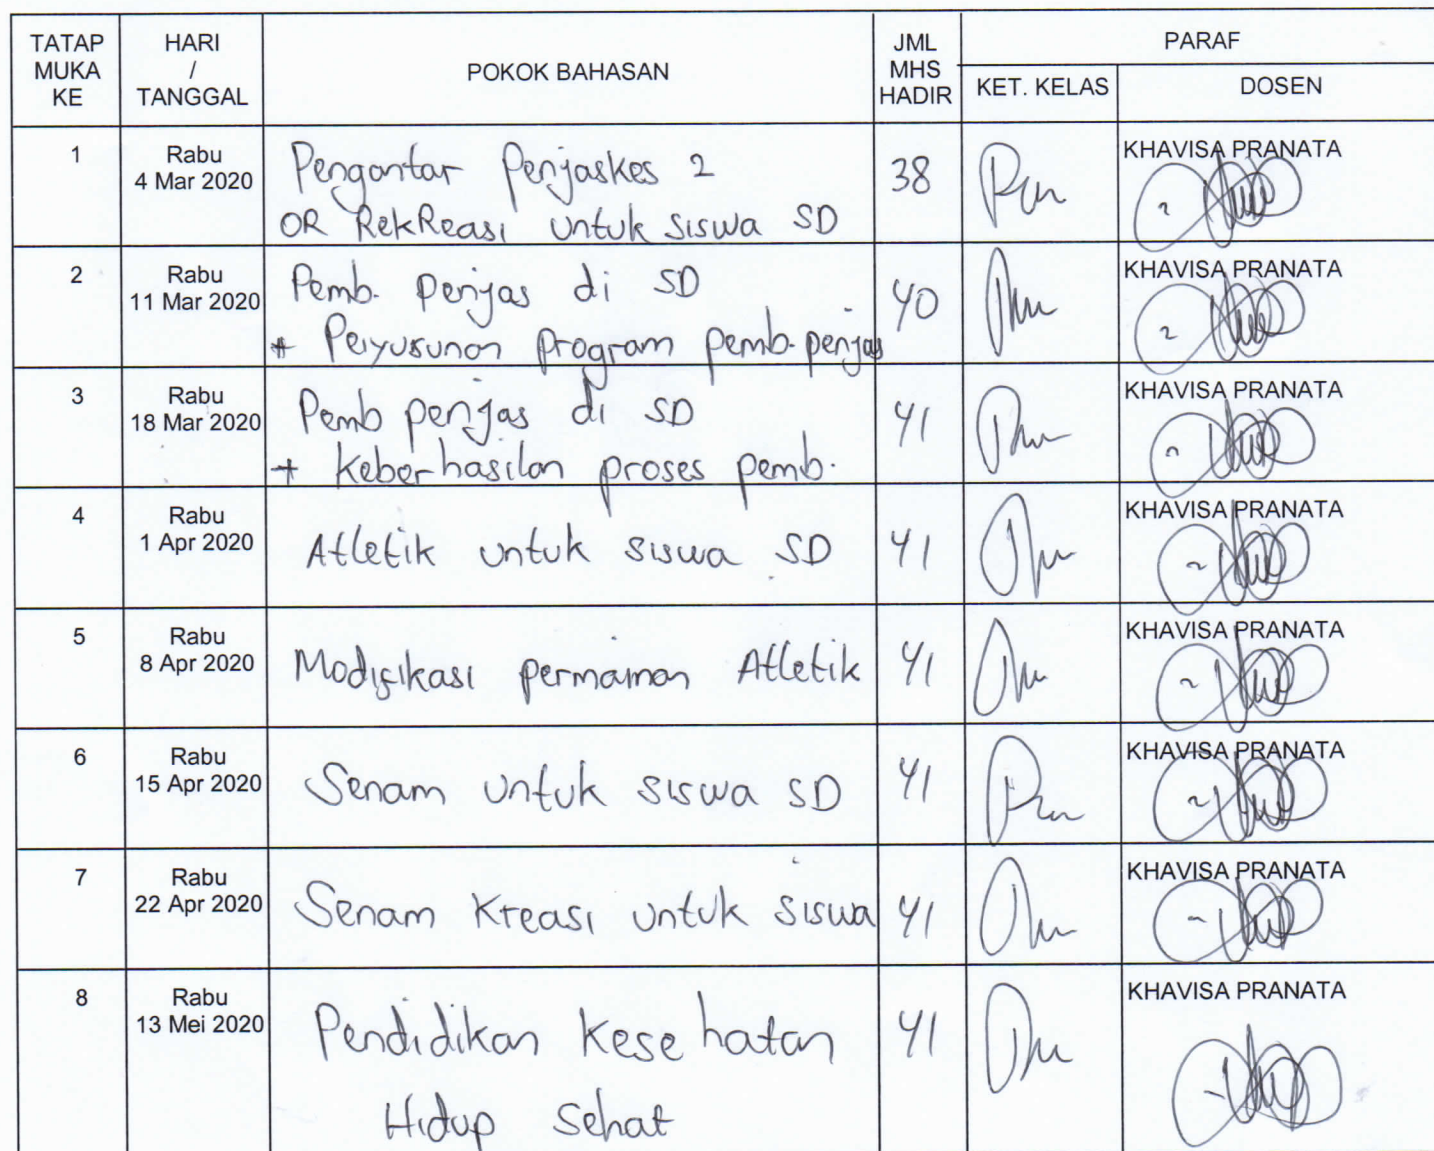 TATAP MUKA KE
HARI / TANGGAL
POKOK BAHASAN
JML MHS HADIR
PARAF
KET. KELAS
DOSEN
1
Rabu
4 Mar 2020
Pengantar Penjaskes 2
OR RekReasi untuk siswa SD
38
KHAVISA PRANATA
2
Rabu
11 Mar 2020
Pemb. penjas di SD
+ Penyusunan program pemb. penjas
40
KHAVISA PRANATA
3
Rabu
18 Mar 2020
Pemb penjas di SD
+ Keberhasilan proses pemb.
41
KHAVISA PRANATA
4
Rabu
1 Apr 2020
Atletik untuk siswa SD
41
KHAVISA PRANATA
5
Rabu
8 Apr 2020
Modifikasi permainan Atletik
41
KHAVISA PRANATA
6
Rabu
15 Apr 2020
Senam untuk siswa SD
41
KHAVISA PRANATA
7
Rabu
22 Apr 2020
Senam Kreasi untuk siswa
41
KHAVISA PRANATA
8
Rabu
13 Mei 2020
Pendidikan Kesehatan
Hidup Sehat
41
KHAVISA PRANATA